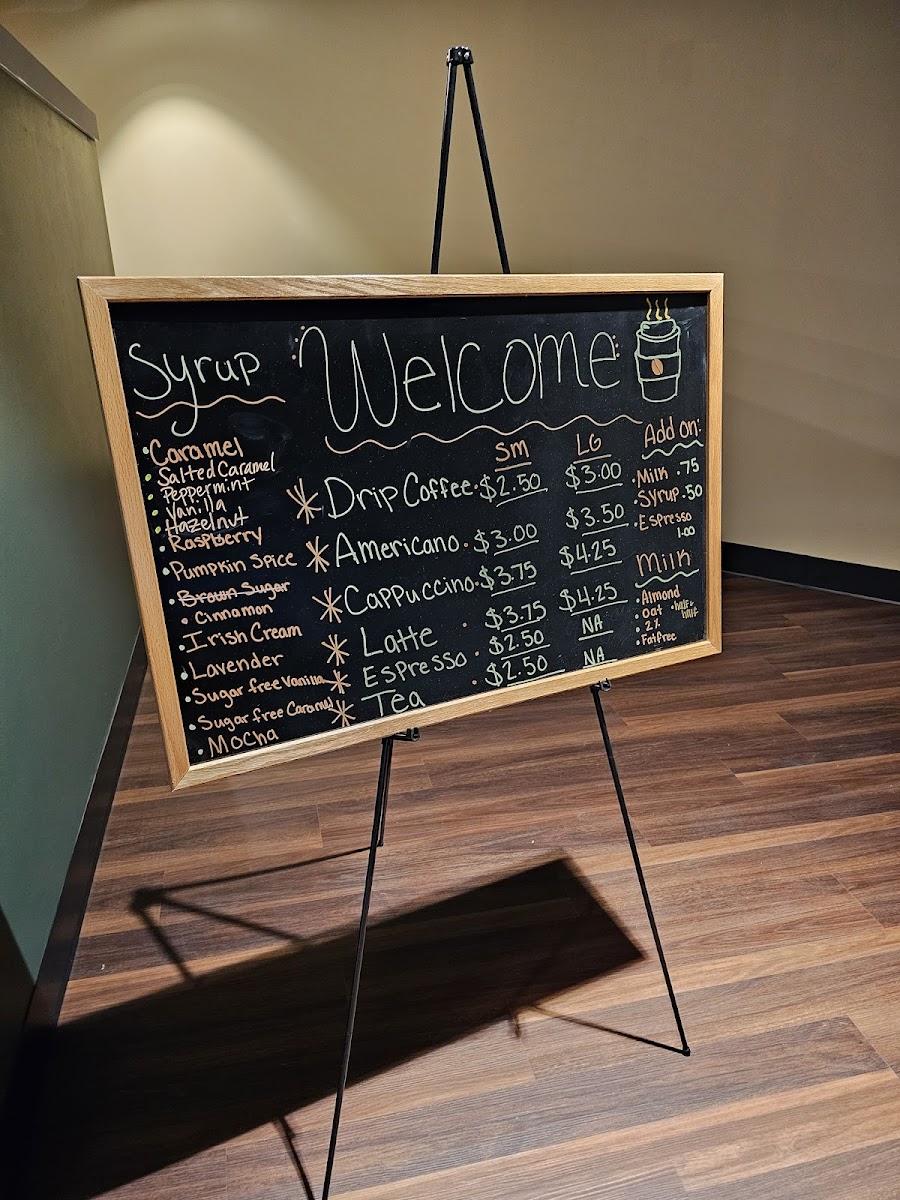 Welcome
Syrup
Caramel
Salted Caramel
Peppermint
Vanilla
Hazelnut
Raspberry
Pumpkin Spice
Brown Sugar
Cinnamon
Irish Cream
Lavender
Sugar free Vanilla
Sugar free Caramel
Mocha
Sm LG
Drip Coffee $2.50 $3.00
Americano $3.00 $3.50
Cappuccino $3.75 $4.25
Latte $3.75 $4.25
Espresso $2.50 NA
Tea $2.50 NA
Add on:
Milk .75
Syrup .50
Espresso
1.00
Milk
Almond
Oat
half & half
2%
Fat free